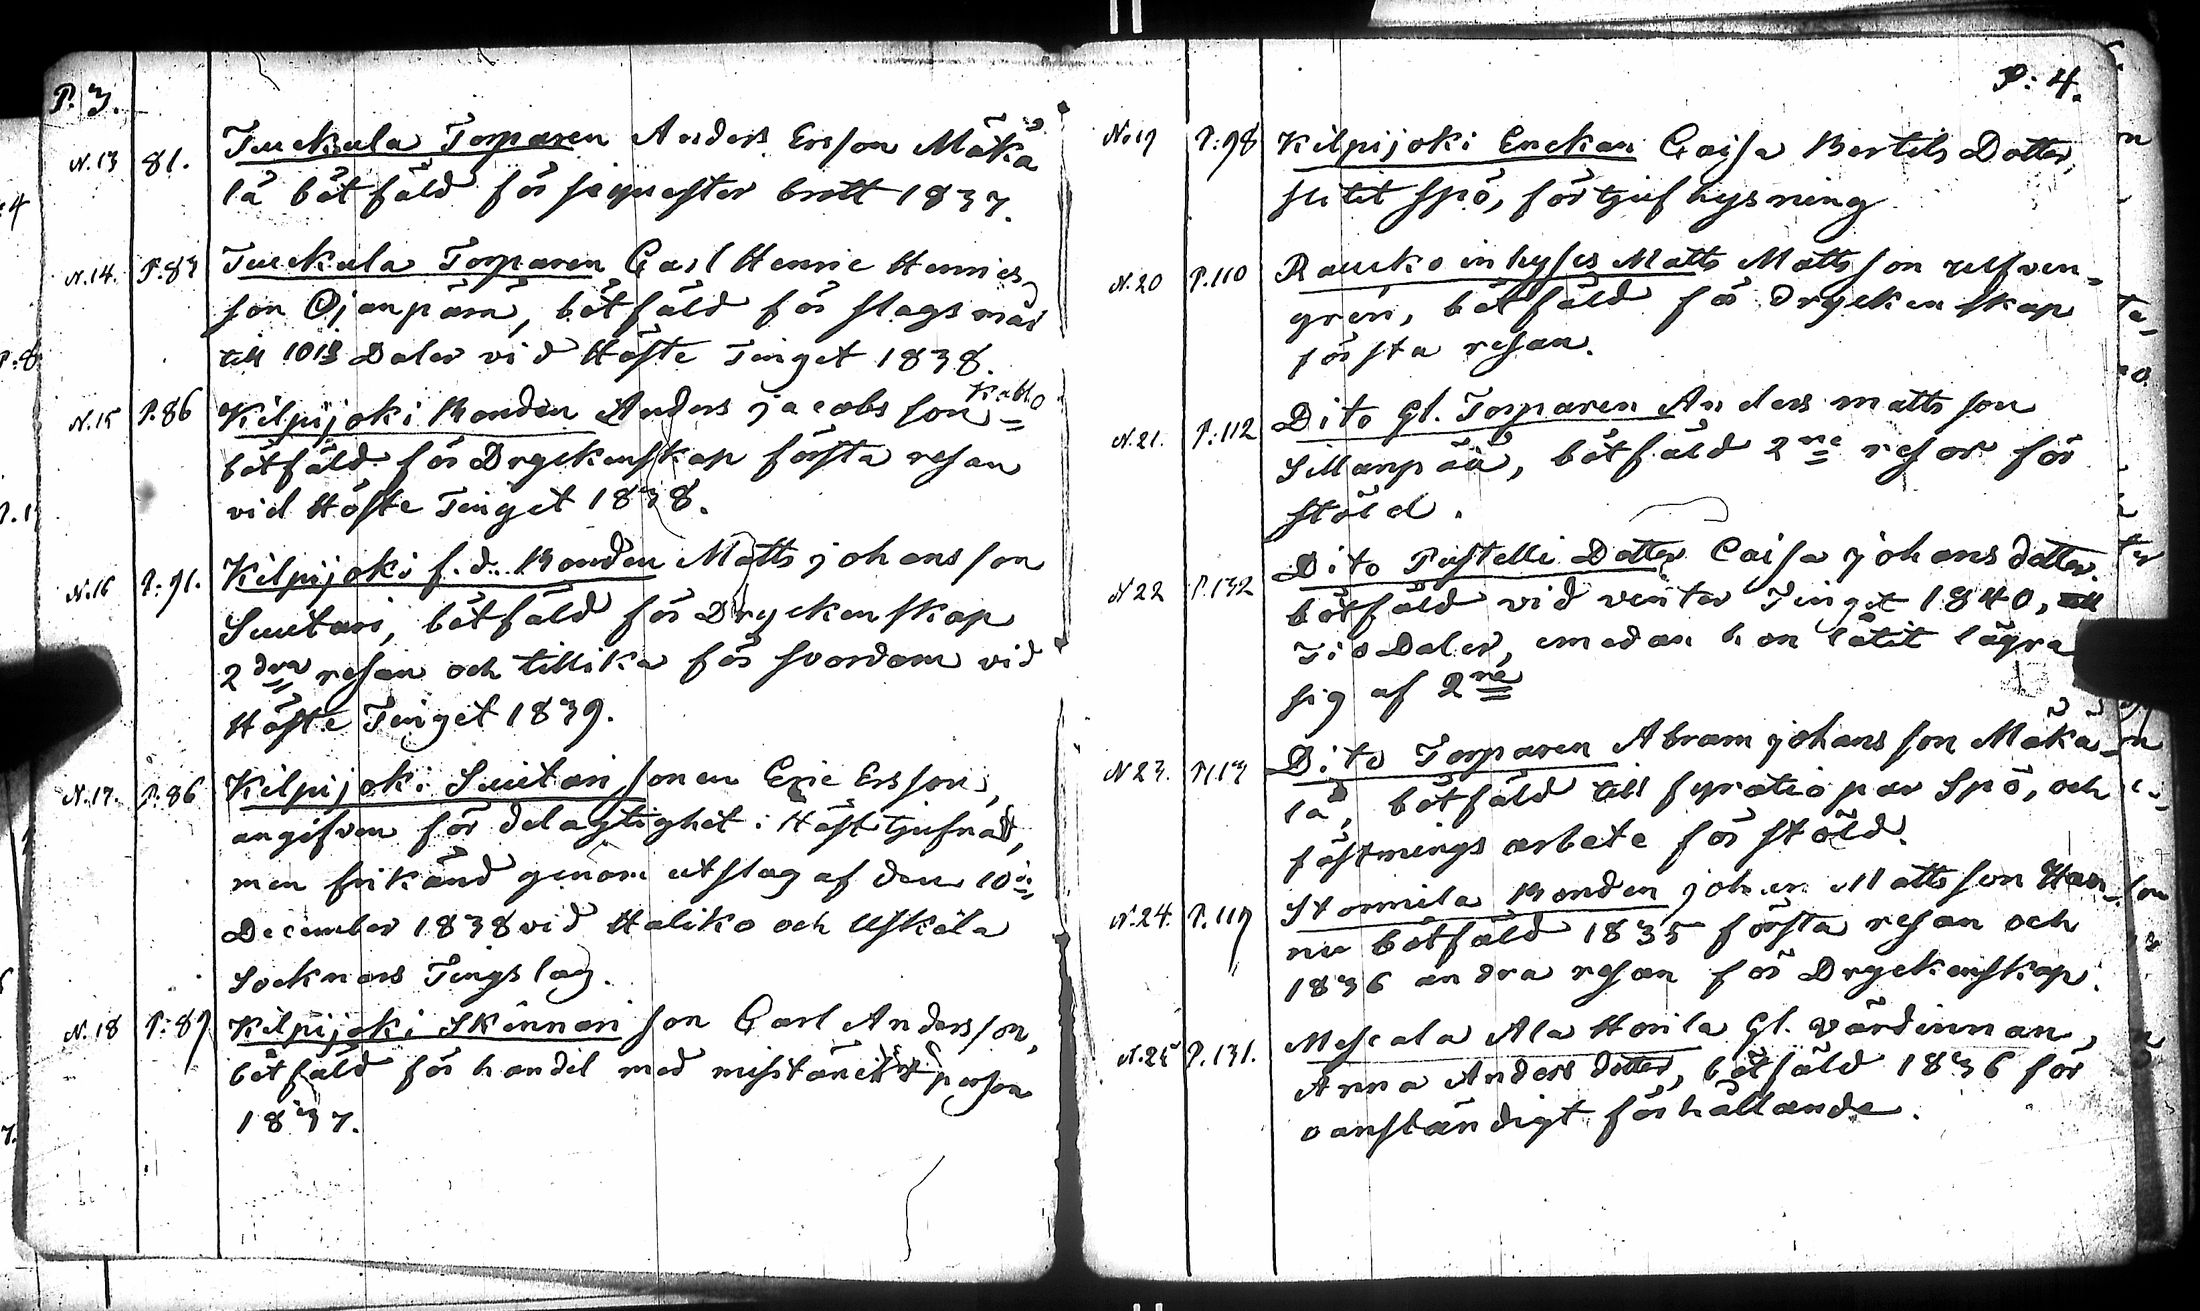 P. 3.
N. 13 81. Tuckula Torparen Anders Ersson Mäkä
lä bötfäld för sequester brott 1837.
N. 14. P. 87 Tuckula Torparen Carl Henric Henrics
son Ojanpää, bötfäld för slagsmål
till Daler vid Höste Tinget 1838.
N. 15 P. 86 Kilpijoki Bonden Anders Jacobsson Kallo =
bötfäld för Dryckenskap första resan
vid Höste Tinget 1838.
N. 16 P. 91. Kilpijoki f. d. Bonden Matts Johansson
Suutari, bötfäld för Dryckenskap
2dra resan och tillika för svordom vid
Höste Tinget 1839.
N. 17. P. 86 Kilpijoki Suutari sonen Eric Ersson,
angifven för delagtighet i Häst tjufnad,
men frikänd genom utslag af den 10
December 1838 vid Haliko och Uskela
Socknars Tingslag.
N. 18 P. 87 Kilpijoki Skinnari son Carl Andersson,
bötfäld för handel med person
1837.
P: 4.
No 19 P: 98 Kilpijoki Enckan Caisa Bertils Dotter,
slitit Spö, för tjufhysning
N. 20 P. 110 Raucko inhyses Matts Mattsson
gren, bötfäld för dryckenskap
första resan.
N. 21. P: 112 Dito Gl. Torparen Anders Mattsson
Sillanpää, bötfäld 2ne resor för
stöld.
N 22 P. 132 Dito Pustelli Dotter Caisa Johansdotter.
bötfäld vid vinter Tinget 1840, till
Tio Daler, emedan hon låtit lägra
sig af 2ne
N 23. Dito Torparen Abram Johansson Mäkä-
lä, bötfäld till fyratio par Spö, och
fästnings arbete för stöld.
N. 24. P. 119 Stormila Bonden Johan Mattsson Han
nu bötfäld 1835 första resan och
1836 andra resan för Dryckenskap.
N. 25 P. 131. Mescala Ala Horila Gl. värdinnan,
Anna Anders dotter, bötfäld 1836 för
oanständigt förhållande.